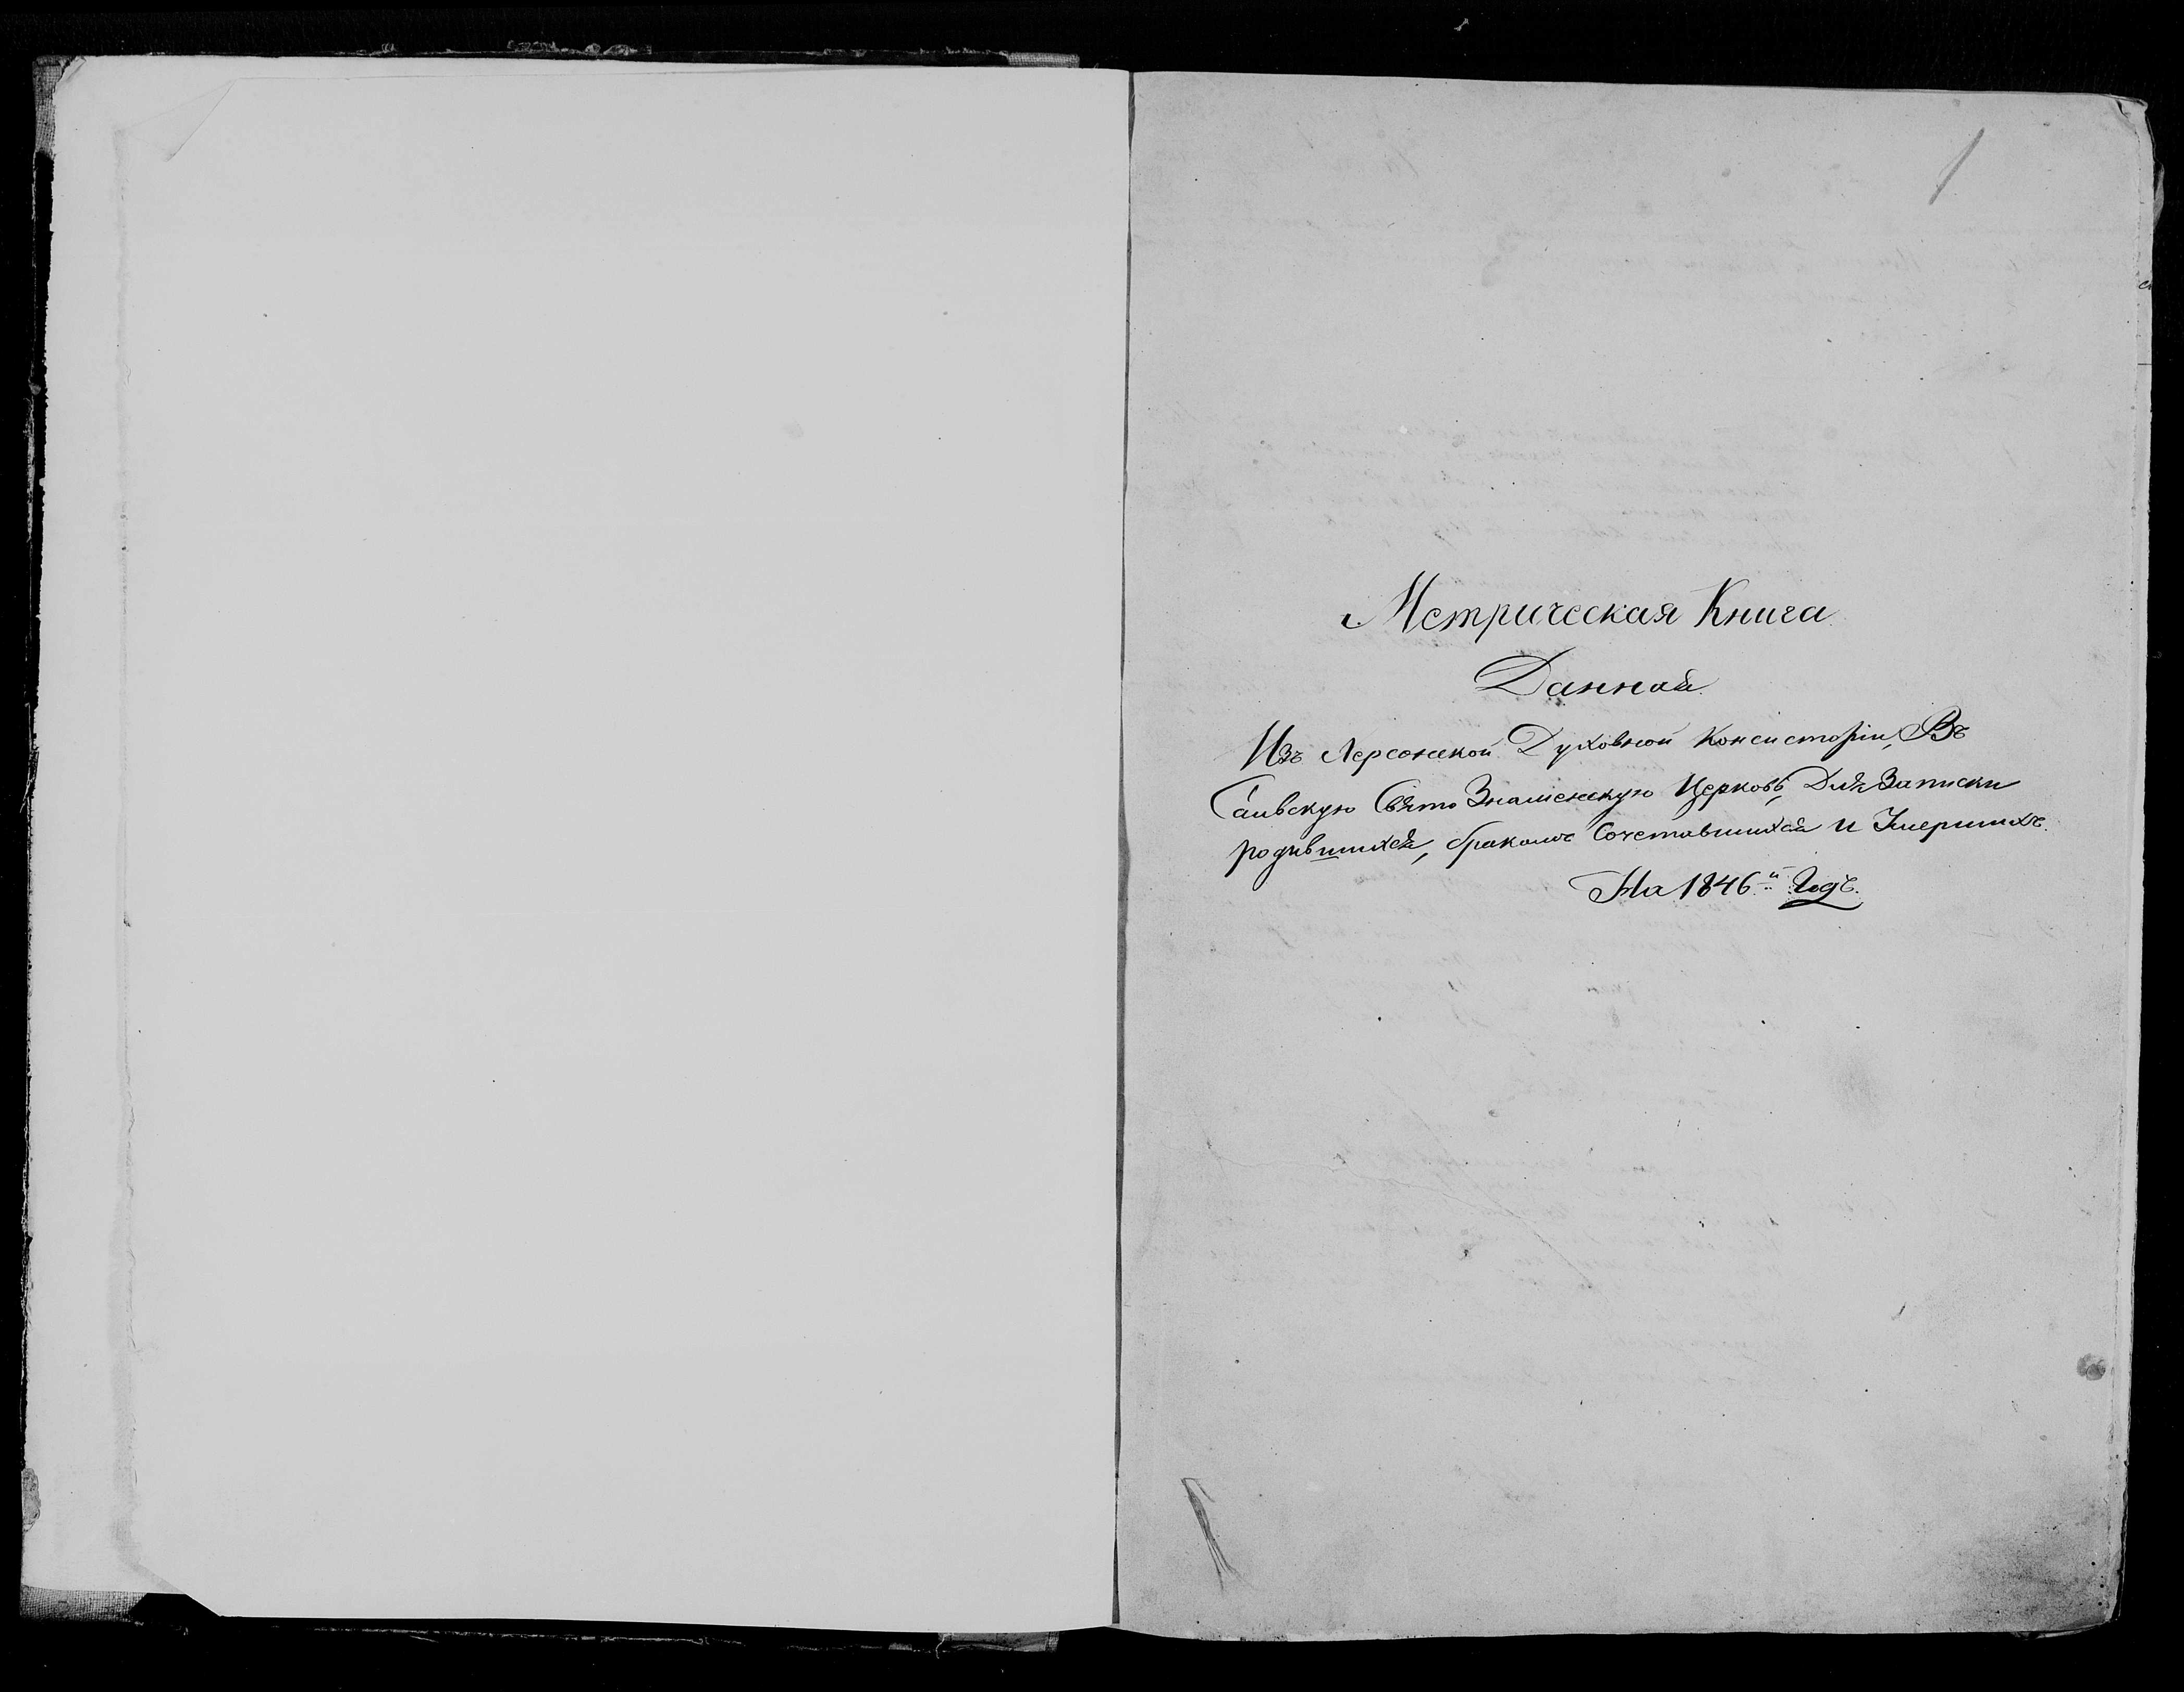 1
Метрическая Книга
Данной
Изъ Херсонской Духовной Консисторіи, Въ
Свято Знаменскую Церковь, Для Записки
родившихся, бракомъ Сочетавшихся и Умершихъ.
На 1846й Годъ.